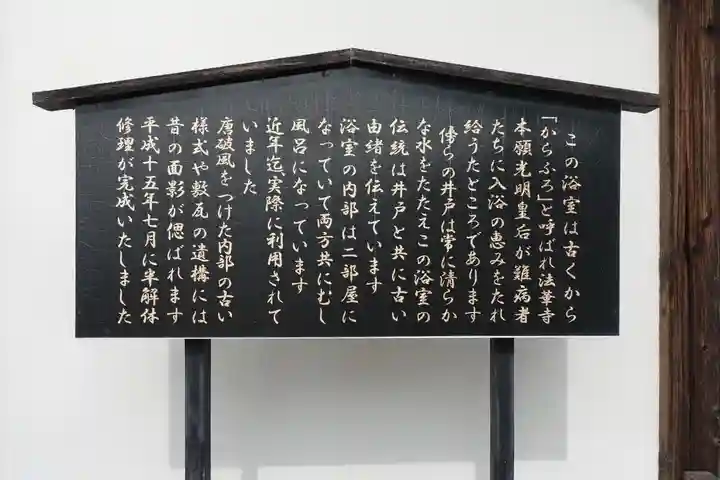 この浴室は古くから
「からふろ」と呼ばれ法華寺
本願光明皇后が難病者
たちに入浴の恵みをたれ
給うたところであります
傍らの井戸は常に清らか
な水をたたえこの浴室の
伝統は井戸と共に古い
由緒を伝えています
浴室の内部は二部屋に
なっていて両方共にむし
風呂になっています
近年迄、実際に利用されて
いました
唐破風をつけた内部の古い
様式や敷瓦の遺構には
昔の面影が偲ばれます
平成十五年七月に半解体
修理が完成いたしました